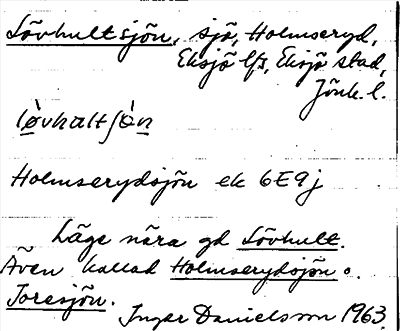 Lövhultsjön, sjö, Holmseryd,
Eksjö lfs, Eksjö stad,
Jönk. l.
lø̀vhaltʃø̀n
Holmserydsjön ek 6E9j
Läge nära gd Lövhult.
Även kallad Holmserydsjön o.
Toresjön.
Inger Danielsson 1963